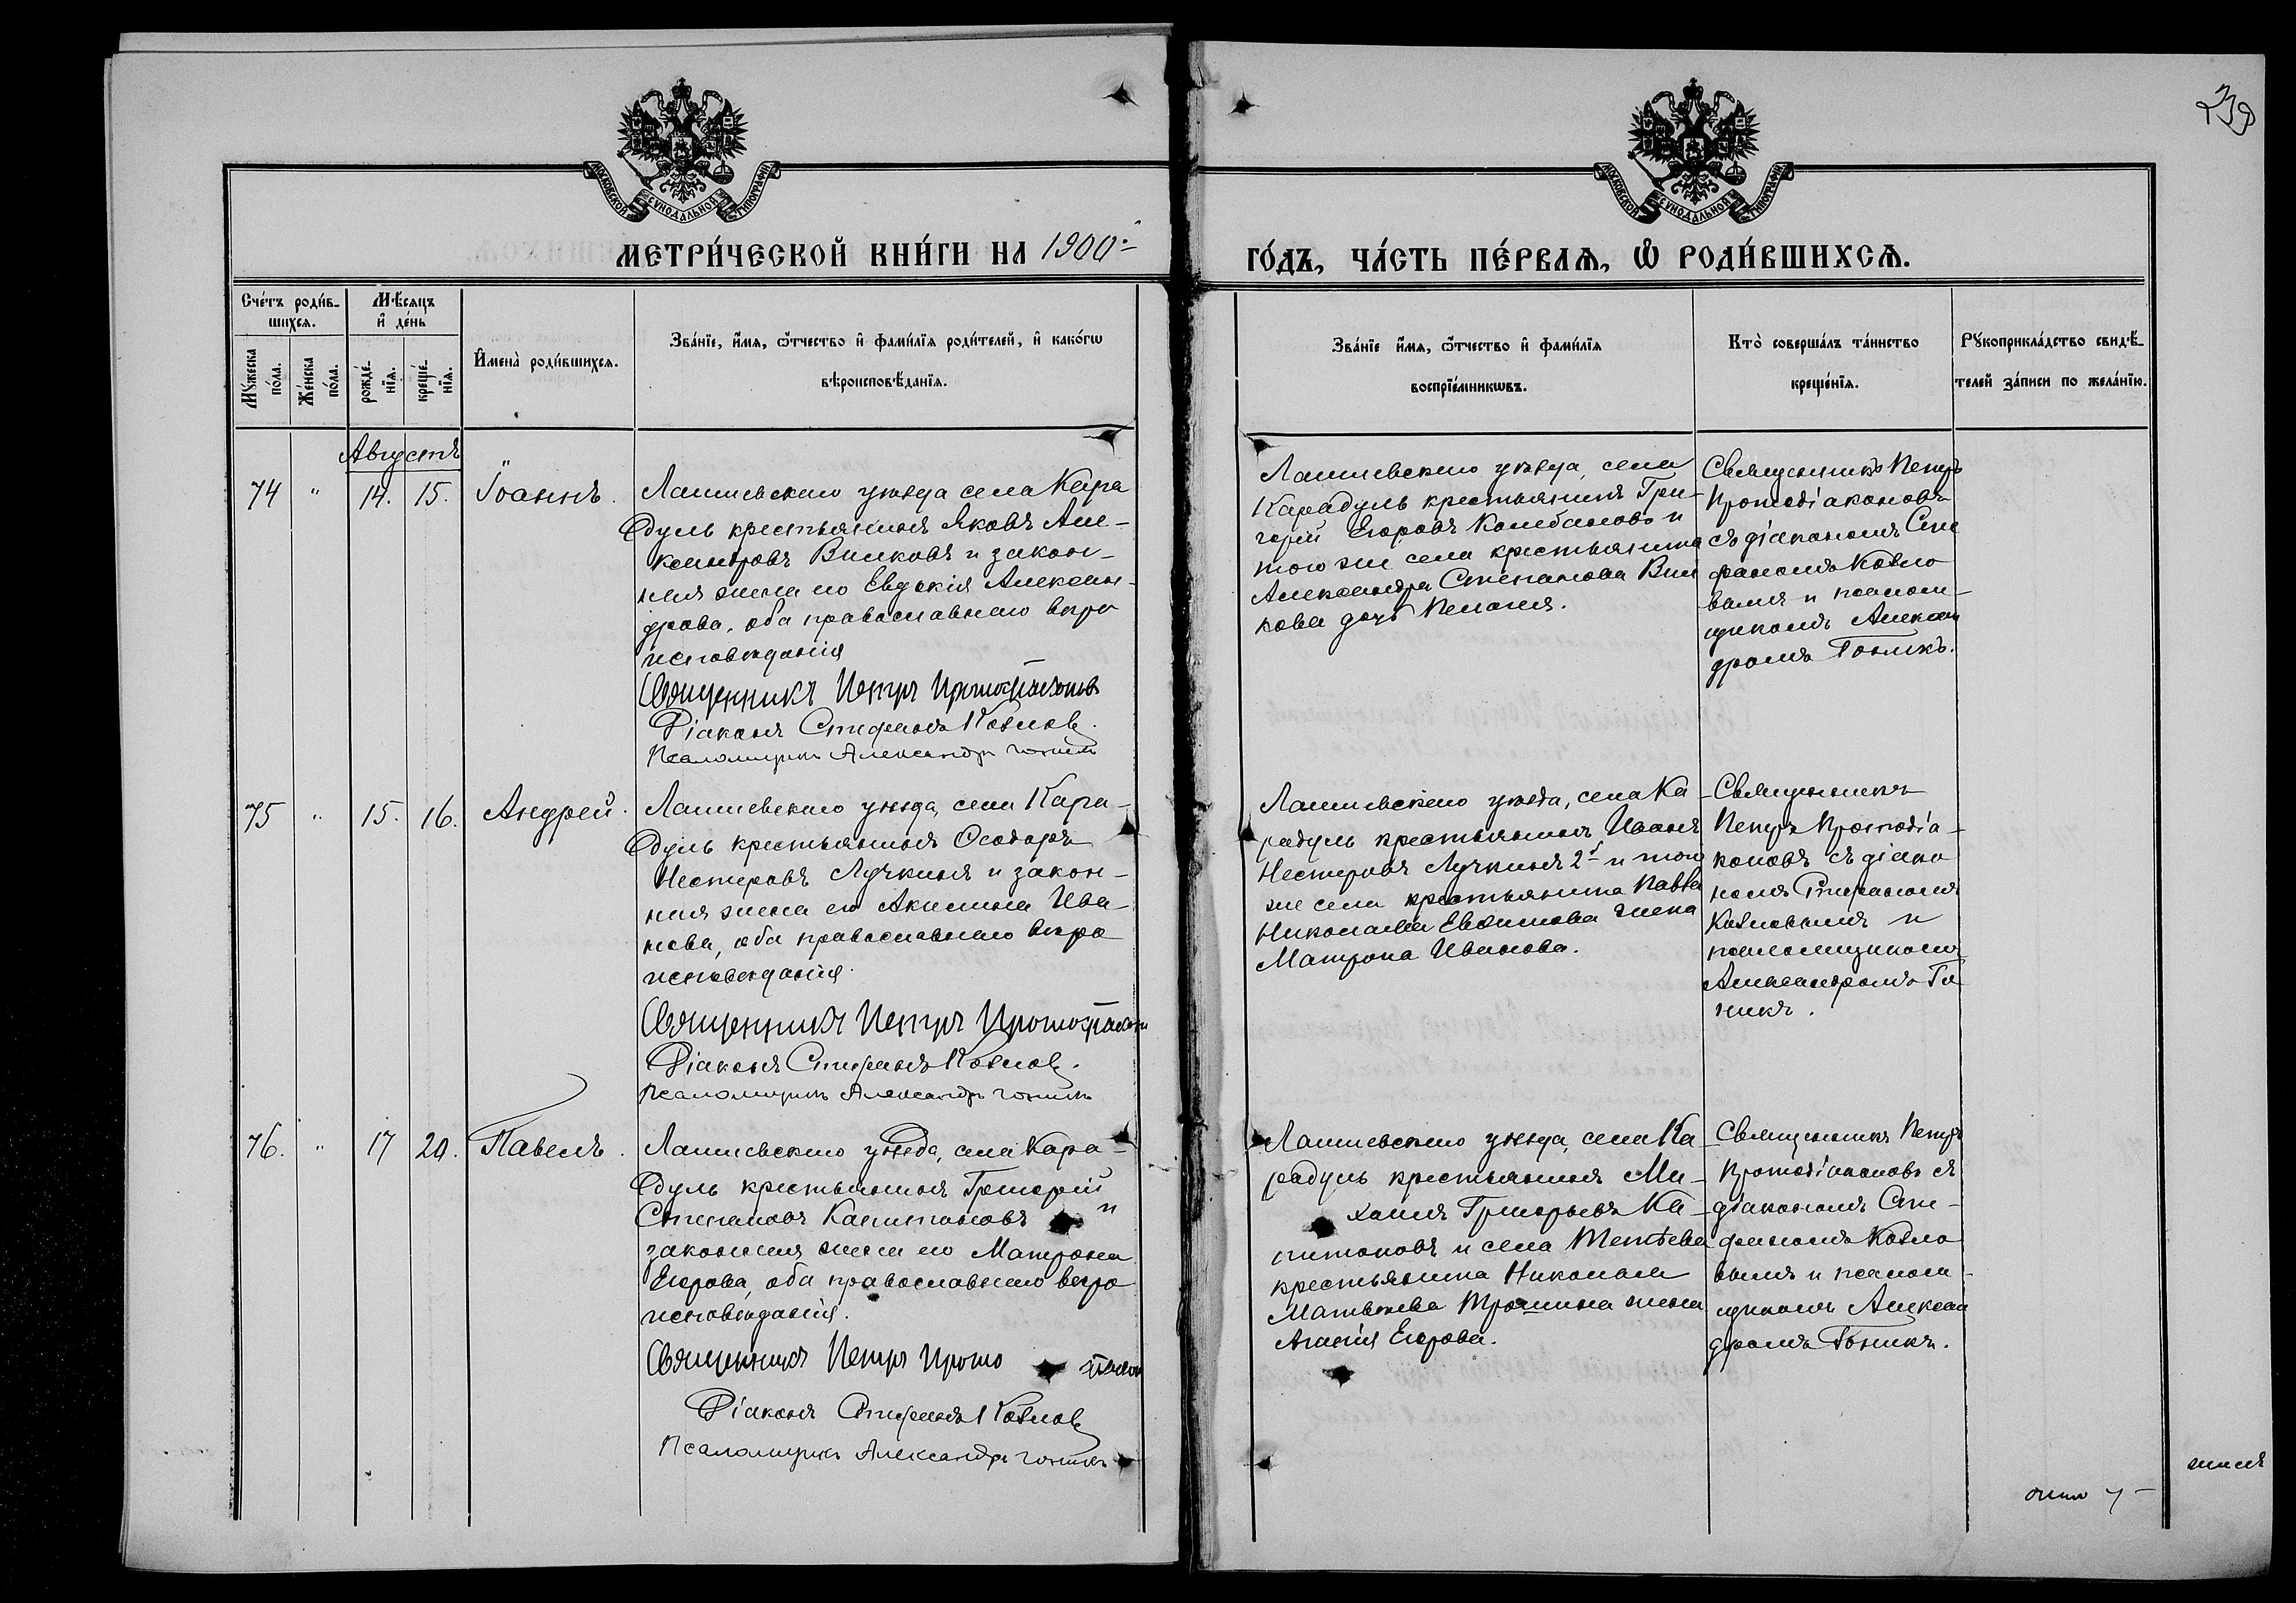 239
МОСКОВСКОЙ СѴНОДАЛЬНОЙ ТИПОГРАФІИ
МОСКОВСКОЙ СѴНОДАЛЬНОЙ ТИПОГРАФІИ
МЕТРИ́ЧЕСКОЙ КНИ́ГИ НА 1900:-
ГО́ДЪ, ЧА́СТЬ ПЕ́РВАѦ, Ѡ РОДИ́ВШИХСѦ.
Сче́тъ роди́в-
шихсѧ.
Мѣ́сѧцъ
и҆ де́нь
Мꙋжеска по́ла.
Же́нска по́ла.
рожде́-
нїѧ.
креще́-
нїѧ.
И҆мена̀ роди́вшихсѧ.
Зва́нїе, и҆́мѧ, ѻ҆́тчество и҆ фами́лїѧ роди́телей, и҆ како́гѡ
вѣроисповѣ́данїѧ.
Зва́нїе и҆́мѧ, ѻ҆́тчество и҆ фами́лїѧ
воспрїе́мникѡвъ.
Кто̀ соверша́лъ та́инство
креще́нїѧ.
Рꙋкоприкла́дство свидѣ́-
телей за́писи по жела́нїю.
Августъ
74 " 14. 15. Іоаннъ.
Лаишевскаго уѣзда села Кара
дуль крестьянинъ Яковъ Але-
ксандровъ Вилковъ и закон-
ная жена его Евдокія Алексан-
дрова, оба православнаго вѣро
исповѣданія
Священникъ Петръ Протодіаконовъ
Діаконъ Стефанъ Козловъ.
Псаломщикъ Александръ Гоникъ
Лаишевскаго уѣзда, села
Карадуль крестьянинъ Гри-
горій Егоровъ Колебановъ и
того же села крестьянина
Александра Степанова Вил
кова дочь Пелагія.
Священникъ Петръ
Протодіаконовъ
съ діакономъ Сте
фаномъ Козло
вымъ и псалом-
щикомъ Алексан
дромъ Гоникъ.
75 " 15. 16. Андрей.
Лаишевскаго уѣзда, села Кара-
дуль крестьянинъ Ѳеодоръ
Нестеровъ Лучкинъ и закон-
ная жена его Акилина Ива-
нова, оба православнаго вѣро
исповѣданія.
Священникъ Петръ Протодіаконовъ
Діаконъ Стефанъ Козловъ.
Псаломщикъ Александръ Гоникъ
Лаишевскаго уѣзда, села Ка-
радуль крестьянинъ Иванъ
Нестеровъ Лучкинъ 2й и того
же села крестьянина Павла
Николаева Евдокимова жена
Матрона Иванова.
Священникъ
Петръ Протодіа-
коновъ съ діако
номъ Стефаномъ
Козловымъ и
псаломщикомъ
Александромъ Го
никъ.
76. " 17 20. Павелъ.
Лаишевскаго уѣзда, села Кара-
дуль крестьянинъ Григорій
Степановъ Капитоновъ и
законная жена его Матрона
Егорова, оба православнаго вѣро
исповѣданія.
Священникъ Петръ Протодіаконовъ
Діаконъ Стефанъ Козловъ
Псаломщикъ Александръ Гоникъ
Лаишевскаго уѣзда, села Ка-
радуль крестьянинъ Ми-
хаилъ Григорьевъ Ка-
питоновъ и села Тетѣева
крестьянина Николая
Матвѣева Трошина жена
Агапія Егорова.
Священникъ Петръ
Протодіаконовъ съ
діакономъ Сте-
фаномъ Козло
вымъ и псалом-
щикомъ Алексан
дромъ Гоникъ.